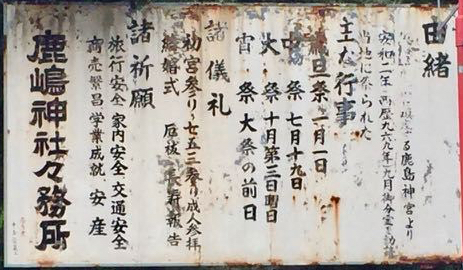 由緒
る鹿島神宮より
安和二年西歴九六九年九月御分霊を勧請
当地に祭られた
主な行事
歳旦祭 一月一日
中祭 七月十九日
大祭 十月第三日曜日
宵祭 大祭の前日
諸儀礼
初宮参り 七五三参り 成人参拝
結婚式 厄祓 新 報告
諸祈願
旅行安全 家内安全 交通安全
商売繁昌 学業成就 安産
鹿嶋神社々務所